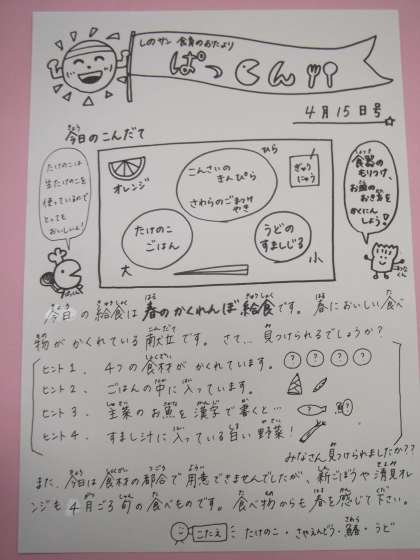 しのサン 食育のおたより
ぱっくん
4月15日号
今日のこんだて
たけのこは
生たけのこを
使っているので
とっても
おいしいよ!
オレンジ
こんさいの
きんぴら
さわらのごまつけ
やき
ひら
ぎゅう
にゅう
たけのこ
ごはん
うどの
すましじる
大
小
食器の
もりつけ、
お皿の
おき方を
かくにん
しよう!
今日の給食は春のかくれんぼ給食です。春においしい食べ
物がかくれている献立です。さて…見つけられるでしょうか?
ヒント1. 4つの食材がかくれています。 ? ? ? ?
ヒント2. ごはんの中に入っています。
ヒント3. 主菜のお魚を漢字で書くと… 魚?
ヒント4. すまし汁に入っている白い野菜!
みなさん見つけられましたか??
また、今日は食材の都合で用意できませんでしたが、新ごぼうや清見オレ
ンジも4月ごろ旬の食べものです。食べ物からも春を感じて下さい。
こたえ たけのこ・さやえんどう・鰆・うど